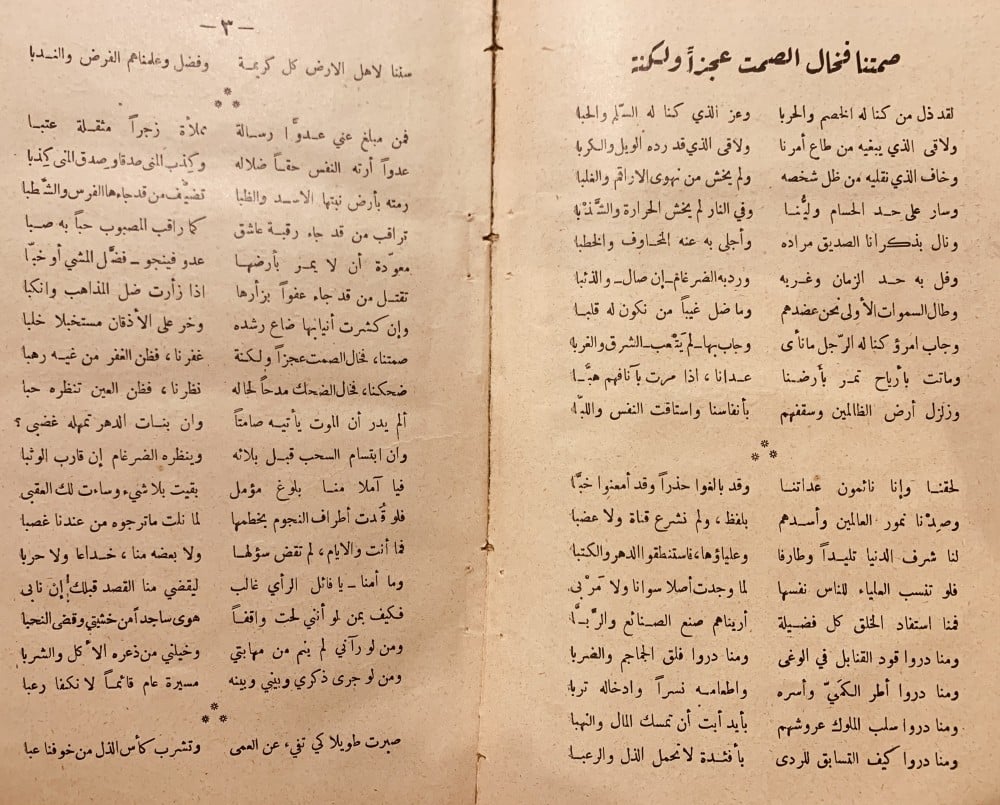 صمتنا فخال الصمت عجزاً ولكنة
لقد ذل من كنا له الخصم والحربا وعز الذي كنا له السلم والحبا
ولاقى الذي يبغيه من طاع أمرنا ولاقى الذي قد رده الويل والكربا
وخاف الذي نقليه من ظل شخصه ولم يخش من نهوى الاراقم والغلبا
وسار على حد الحسام وليُّنا وفي النار لم يخش الحرارة والشَّذبا
ونال بذكرانا الصديق مراده وأجلى به عنه المخاوف والخطبا
وفل به حد الزمان وغربه ورد به الضرغام ـ إن صال ـ والذئبا
وطال السموات الأولى نحن عضدهم وما ضل غيباً من نكون له قلبا
وجاب امرؤ كنا له الرّجل مانأى وجاب بها ـ لم يَتْعب ـ الشرق والغربا
وماتت بأرياح تمر بأرضنا عدانا ، اذا مرت بآنافهم هبَّا
وزلزل أرض الظالمين وسقفهم بأنفاسنا واستاقت النفس واللبَّا
لحقنا وإنا نائمون عداتنا وقد بالغوا حذراً وقد أمعنوا خبَّا
وصِدْنا نمور العالمين وأسدهم بلفظ ، ولم نشرع قناة ولا عضبا
لنا شرف الدنيا تليداً وطارفا وعلياؤها ، فاستنطقوا الدهر والكتبا
فلو تنسب العلياء للناس نفسها لما وجدت أصلا سوانا ولا مَرْبى
فمنا استفاد الخلق كل فضيلة أريناهم صنع الصنائع والرَّبَّا
ومنا دروا قود القنابل في الوغى ومنا دروا فلق الجماجم والضربا
ومنا دروا أطر الكميّ وأسره واطعامه نسراً وادخاله تربا
ومنا دروا سلب الملوك عروشهم بأيد أبت أن تمسك المال والنهبا
ومنا دروا كيف التسابق للردى بأفئدة لا تحمل الذل والرعبا
— ٣ —
سننا لاهل الارض كل كريمة وفضل وعلمناهم الفرض والندبا
فمن مبلغ عني عدوًّا رسالة مملأة زجراً مثقلة عتبا
عدواً أرته النفس حقاً ضلاله وكذب المنى صدقا وصدق المنى كذبا
رمته بأرض نبتها الاسد والظبا تضيّف من قد جاءها الفرس والشَّطبا
تراقب من قد جاء رقبة عاشق كما راقب المصبوب حباً به صبا
معودة أن لا يمر بأرضها عدو فينجو ـ فضَّل المشي أو خبّا
تقتل من قد جاء عفواً بزأرها اذا زأرت ضل المذاهب وانكبا
وإن كشرت أنيابها ضاع رشده وخر على الأذقان مستخبلا خلبا
صمتنا ، فخال الصمت عجزاً ولكنة غفرنا ، فظن الغفر من غيه رهبا
ضحكنا ، فخال الضحك مدحاً لحاله نظرنا ، فظن العين تنظره حبا
ألم يدر أن الموت يأتيه صامتاً وان بنات الدهر تمهله غضبى ؟
وان ابتسام السحب قبل بلائه وينظره الضرغام إن قارب الوثبا
فيا آملا منا بلوغ مؤمل بقيت بلا شيء وساءت لك العقبى
فلو قُدت أطراف النجوم بخطمها لما نلت ما ترجوه من عندنا غصبا
فما أنت والايام ، لم تقض سؤلها ولا بعضه منا ، خداعا ولا حربا
وما أمنا ـ يا فائل الرأي غالب ليقضي منا القصد قبلك إن نابى
فكيف بمن لو أنني لحت واقفاً هوى ساجداً من خشيتي وقضى النحبا
ومن لو رآني لم ينم من مهابتي وخيلني من ذعره الأكل والشربا
ومن لو جرى ذكري وبيني وبينه مسيرة عام قائماً لانكفا رعبا
صبرت طويلا كي تفيء عن العمى وتشرب كأس الذل من خوفنا عبا